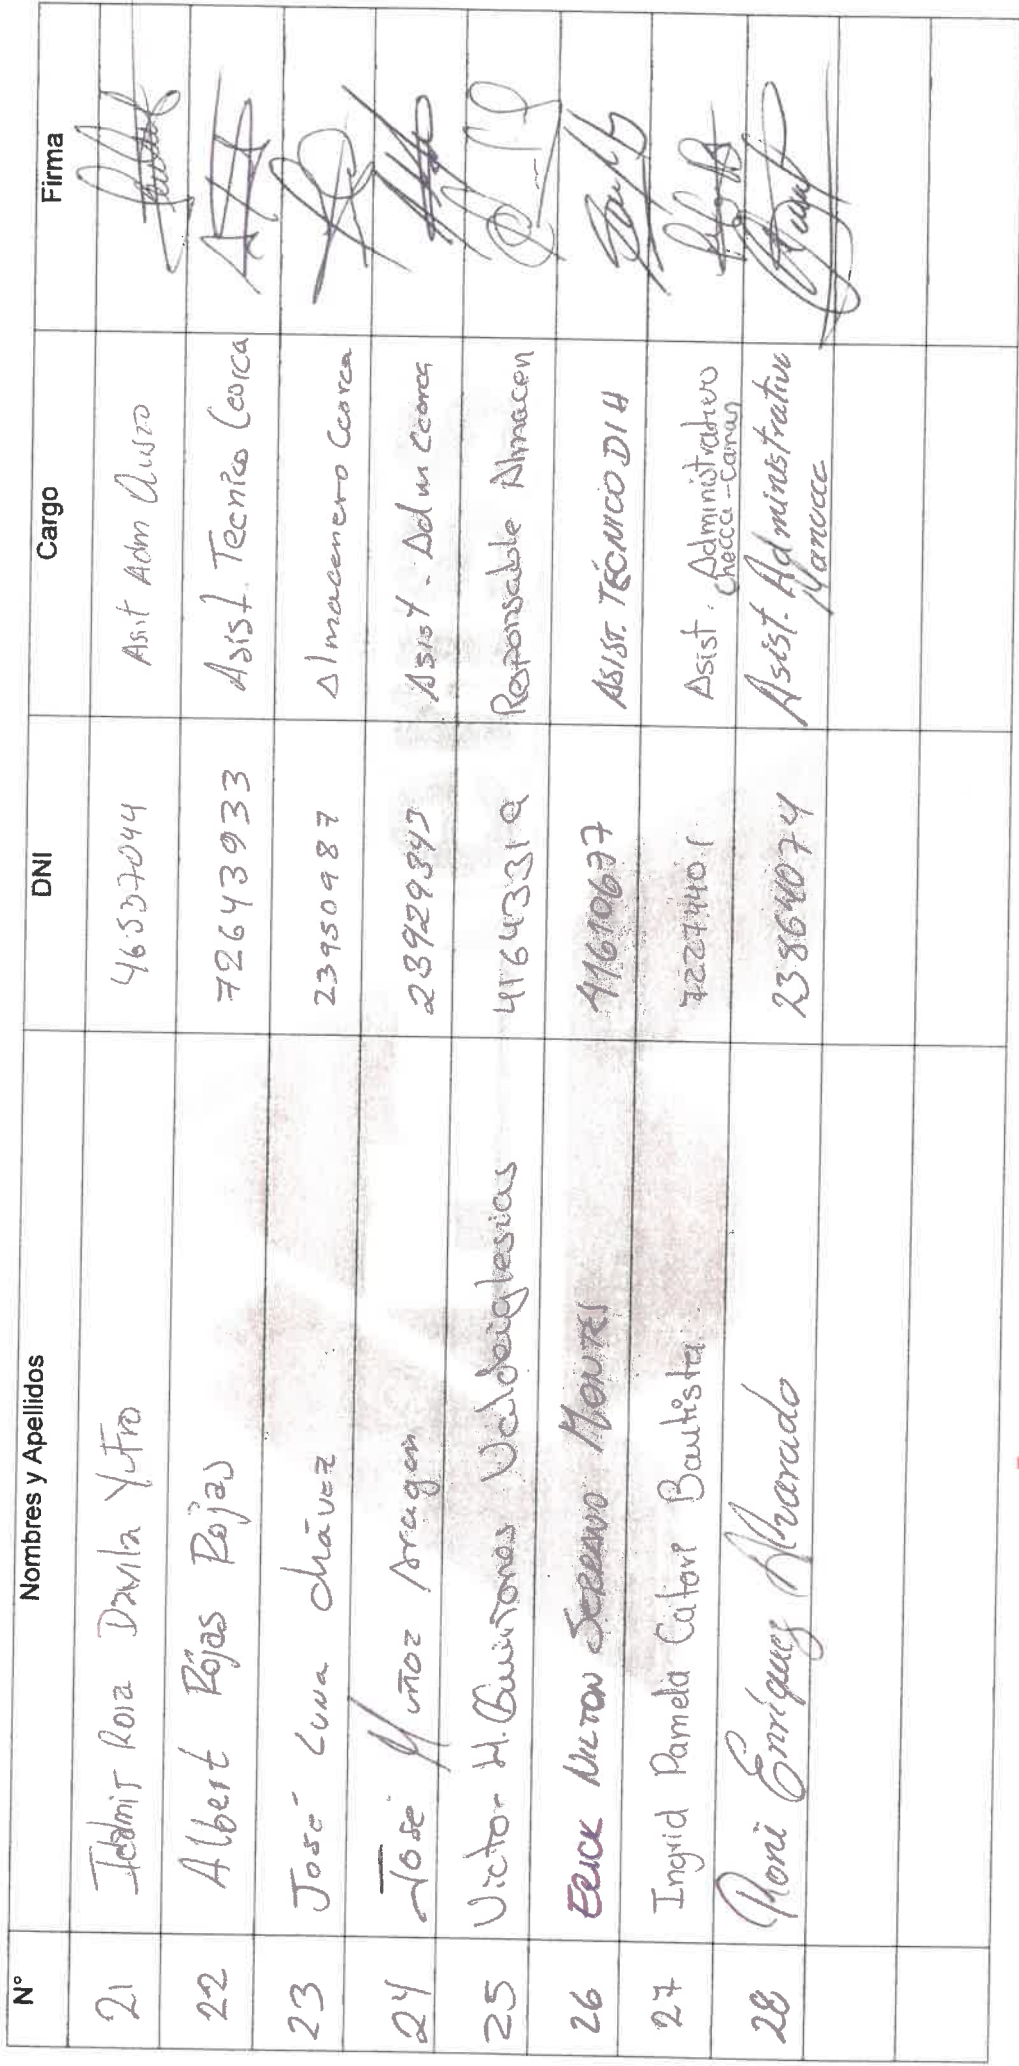 N° Nombres y Apellidos DNI Cargo Firma
21 Rosa Davila Yufro Asit Adm Cusco
22 Albert Rojas Rojas 72643933 Asist. Tecnico Ccorca
23 José Luna chávez 23950987 Almacenero Ccorca
24 José Muñoz Aragon 23929343 Asist. Adm Ccorca
25 Victor H. Quiñones Valdeiglesias 41643319 Responsable Almacen
26 ERICK NILTON SERRANO MONTES 41610637 ASIST. TÉCNICO DIH
27 Ingrid Pamela Catori Bautista 72274401 Asist. Administrativo
Checca-Canas
28 Roni Enriquez Alvarado 23864074 Asist. Administrativo